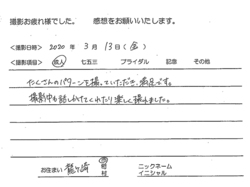 撮影お疲れ様でした。 感想をお願いいたします。
<撮影日時> 2020 年 3 月 13 日(金)
<撮影項目> 成人 七五三 ブライダル 記念 その他
たくさんのパターンを撮っていただき、満足です。
撮影中も話しかけてくれたり楽しく撮れました。
お住まい 龍ヶ崎 市
ニックネーム
イニシャル